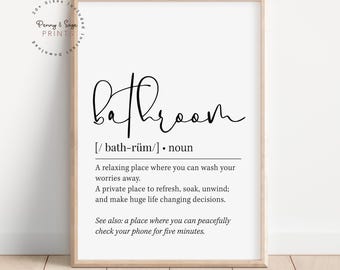 Penny & Sage
PRINTS
bathroom
[/ bath-rüm/] • noun
A relaxing place where you can wash your
worries away.
A private place to refresh, soak, unwind;
and make huge life changing decisions.
See also: a place where you can peacefully
check your phone for five minutes.